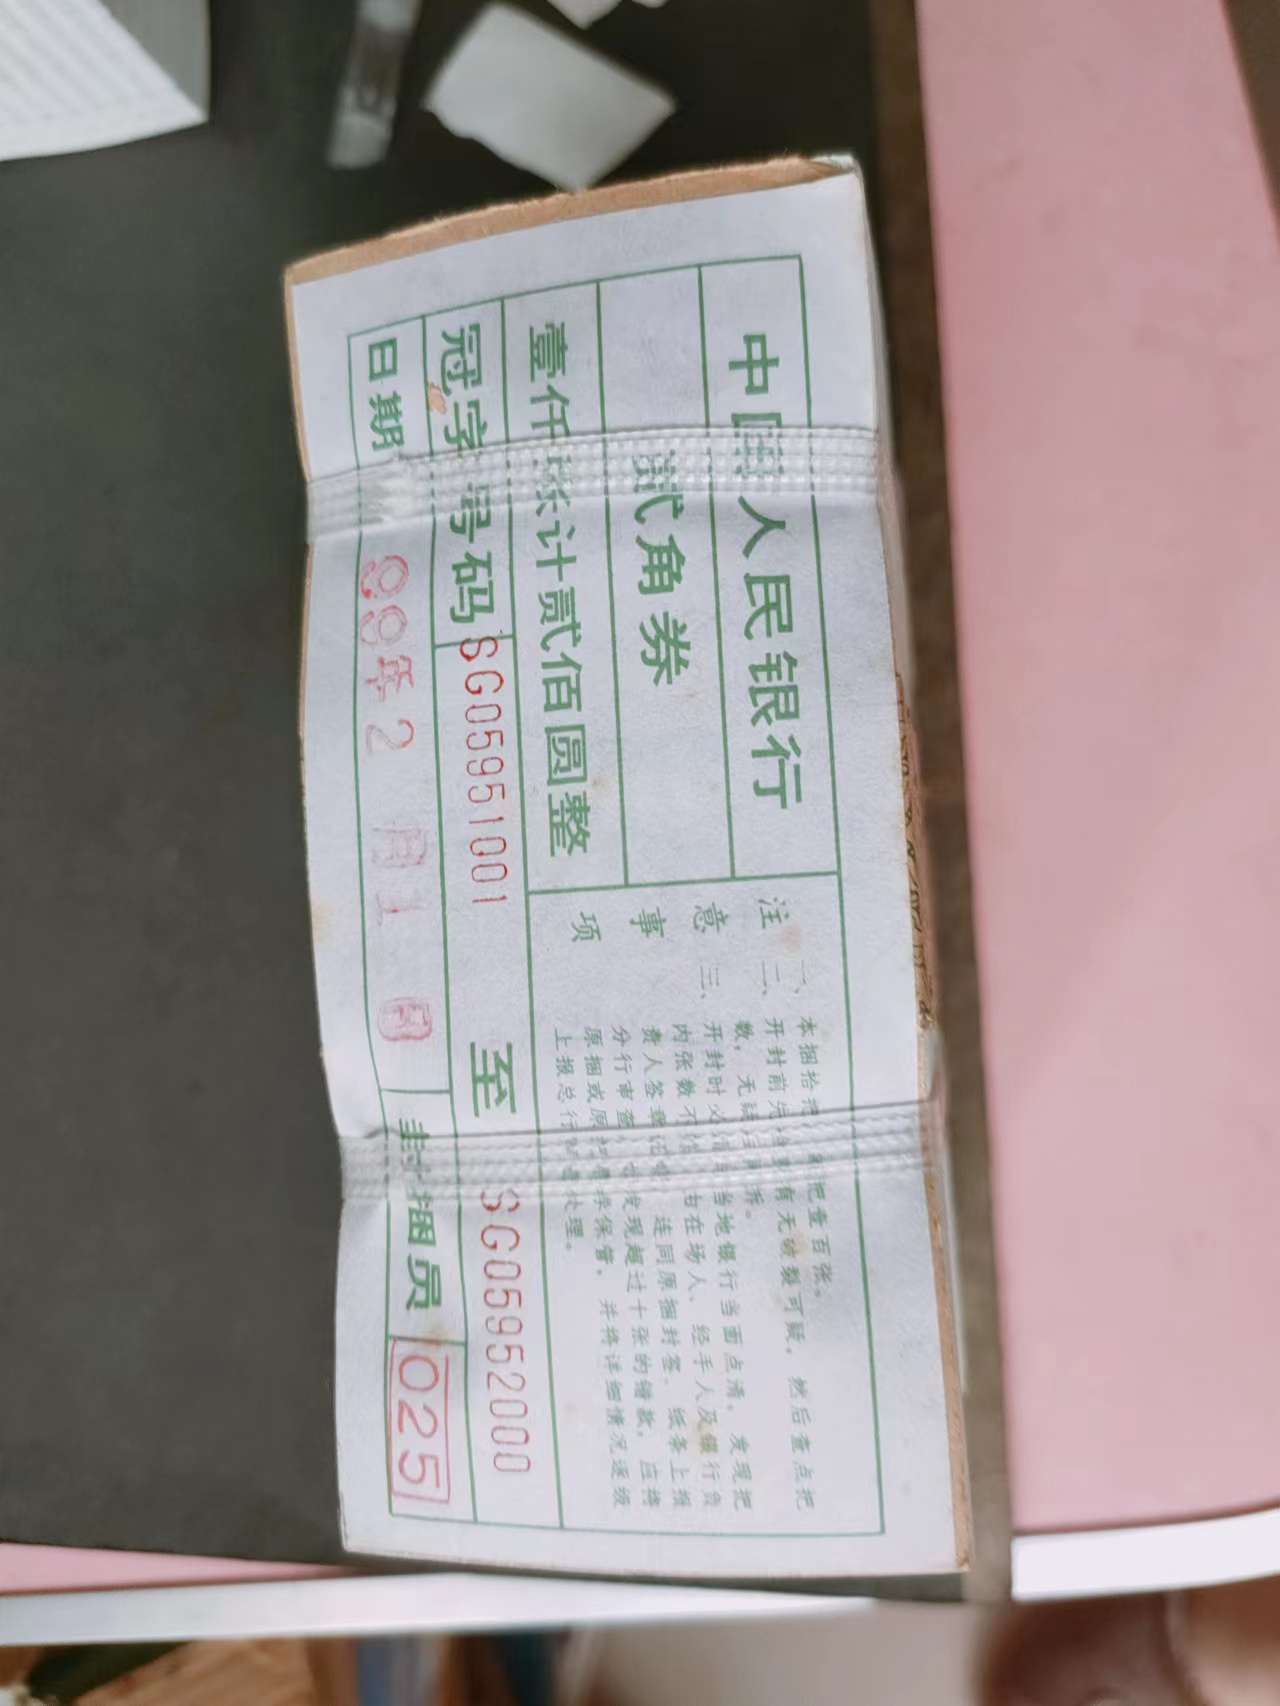 中国人民银行
贰角券
壹仟张计贰佰圆整
注意事项
一、本捆拾把，每把壹百张。
二、开封前先检查有无破裂可疑，然后查点把
数，无疑后再拆。
三、开封时必须与当地银行当面点清，发现把
内张数不符，由在场人、经手人及银行负
责人签章证明，连同原捆封签、纸条上报
分行审查。如发现超过十张的错款，应将
原捆或原把妥善保管，并将详细情况逐级
上报总行 处理。
冠字号码 SG05951001 至 SG05952000
日期 99年2月1日 封捆员 025